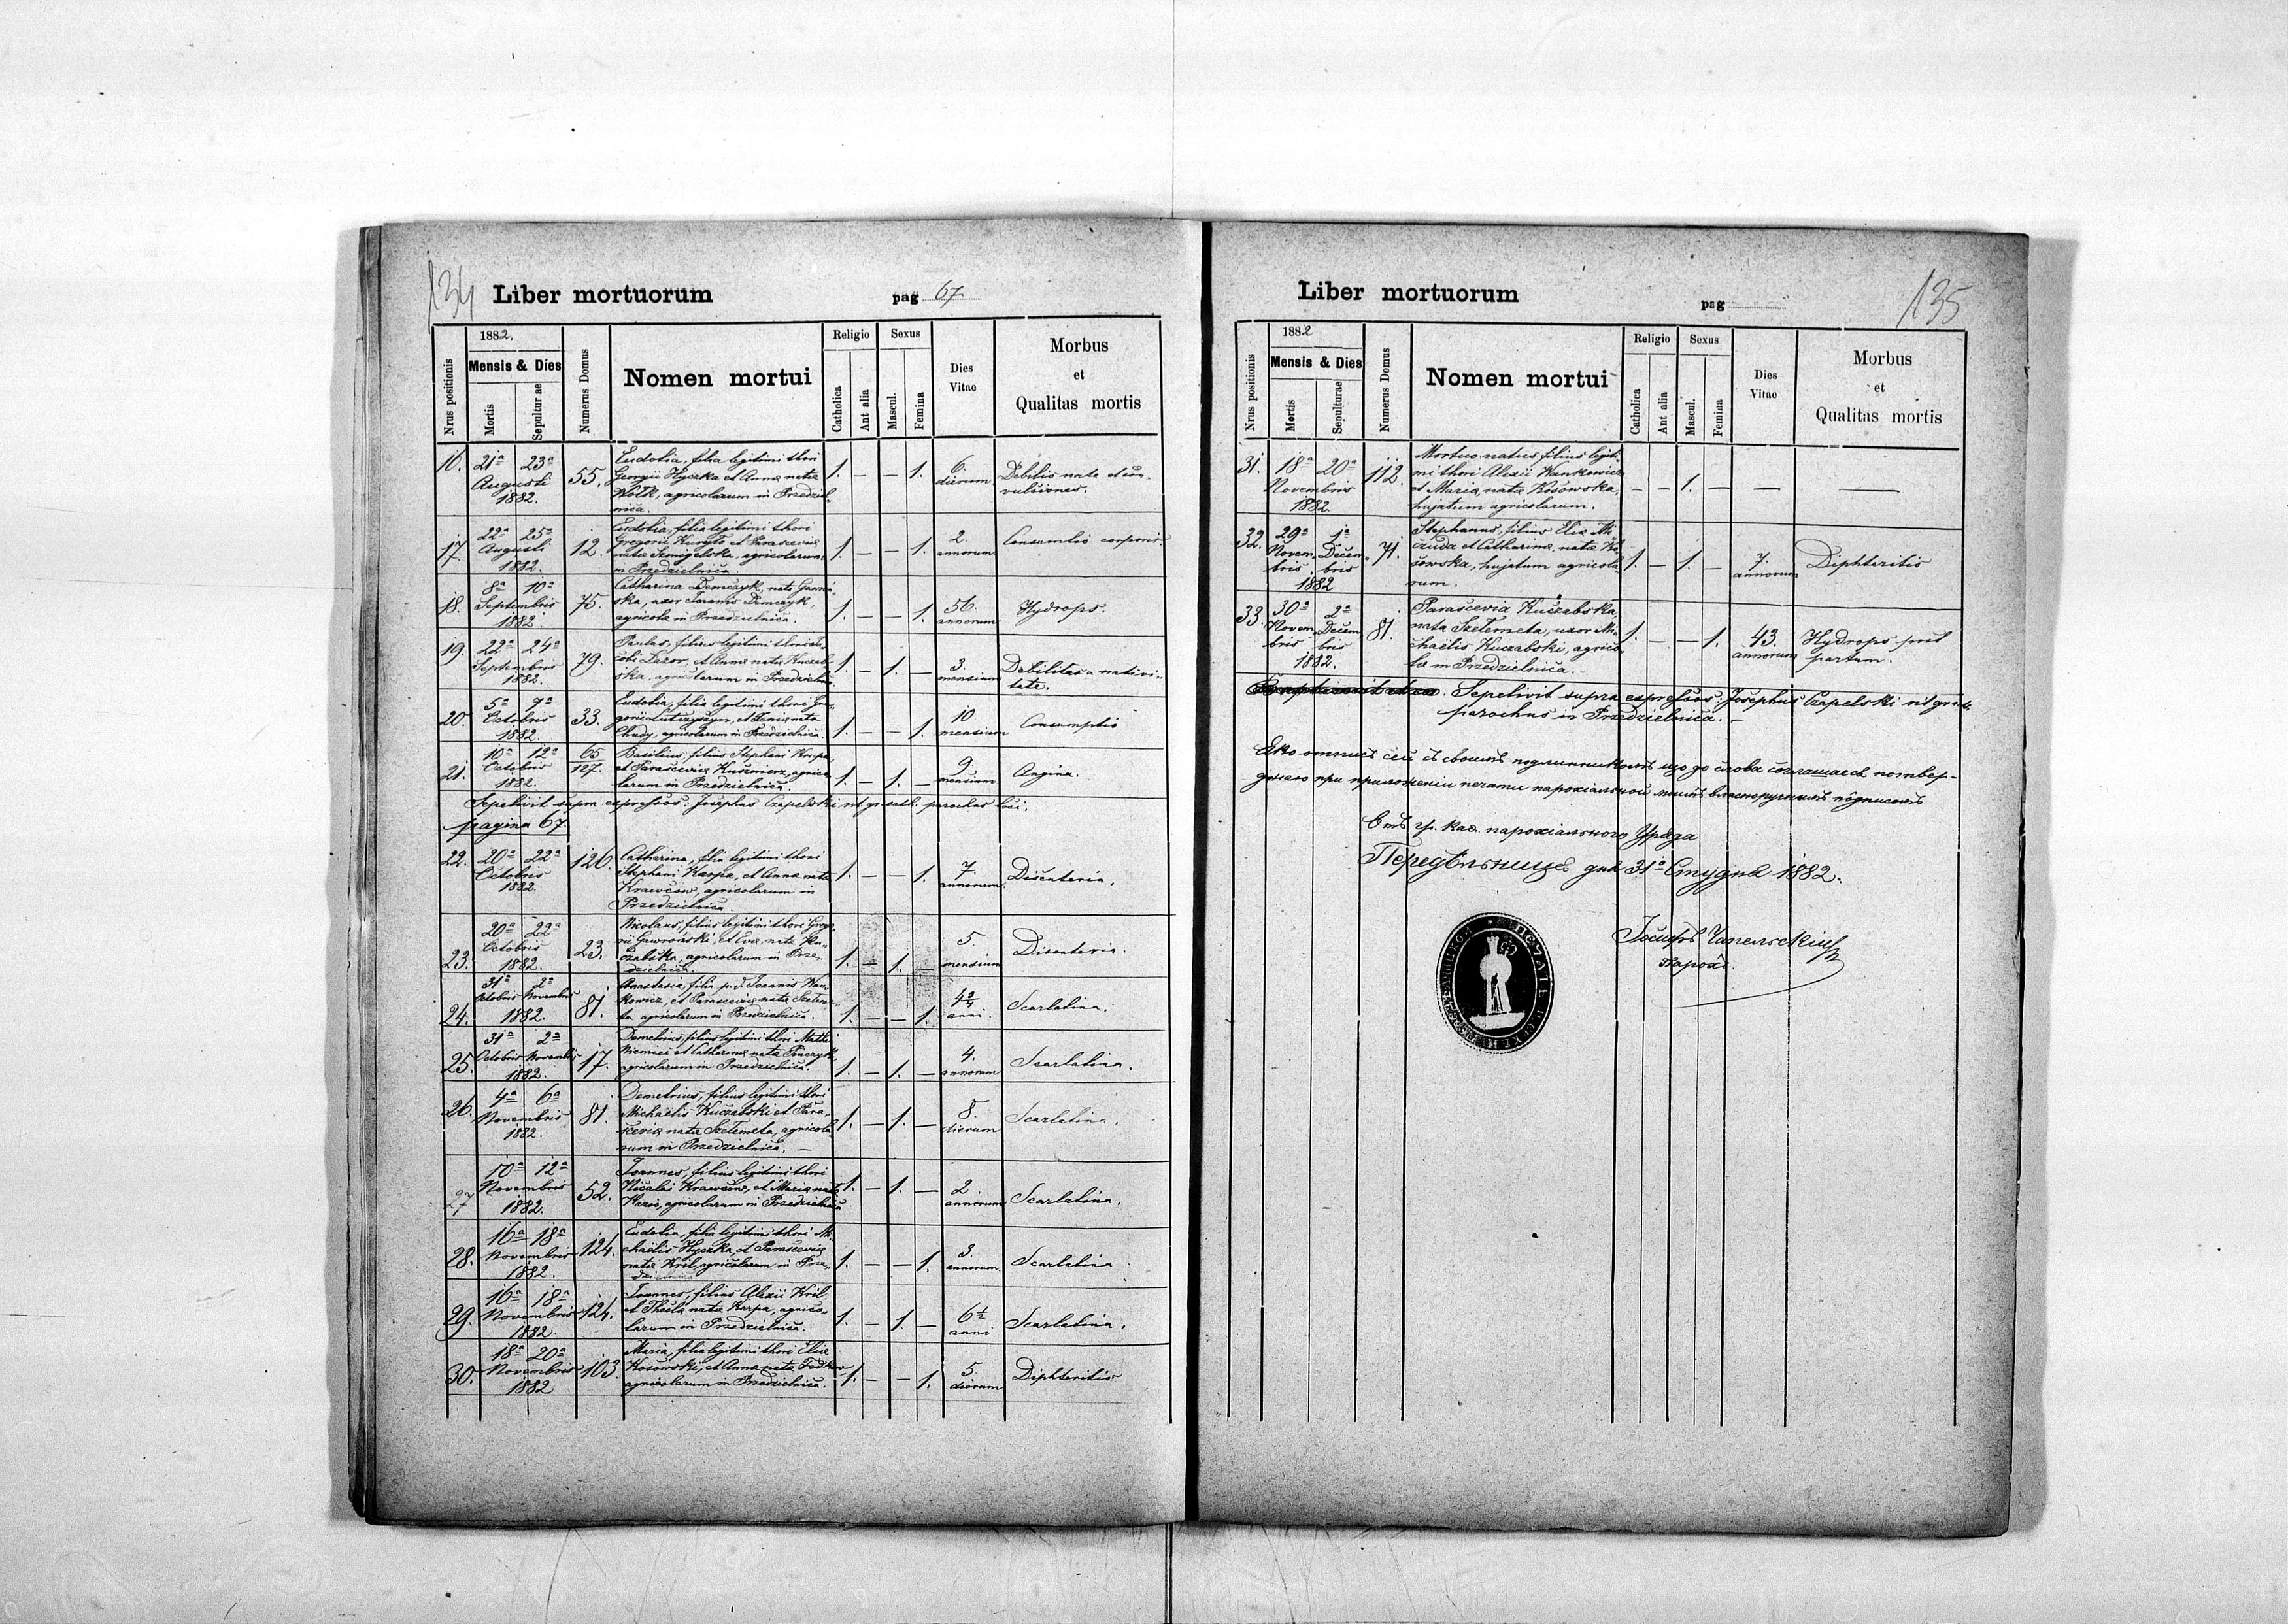 134
Liber mortuorum pag 67
1882.
Nrus positionis
Mensis & Dies
Mortis
Sepultur ae
Numerus Domus
Nomen mortui
Religio
Catholica
Aut alia
Sexus
Mascul.
Femina
Dies
Vitae
Morbus
et
Qualitas mortis
16. 21a 23a Augusti 1882. 55.
Eudotia, filia legitimi thori
Georgii Hyczka et Anna nata
Wolk, agricolarum in Przedziel-
nica.
1. — — 1. 6. dierum
Debilis nata et con-
vulsiones.
17. 22a 25a Augusti 1882. 12.
Eudotia, filia legitimi thori
Gregorii et Parascevia
nata agricolarum
in Przedzielnica.
1. — — 1. 2. annorum
Consumtio corporis
18. 8a 10a Septembris 1882 75.
Catharina Demczyk, nata
ska, uxor Joannis Demczyk,
agricola in Przedzielnica.
1. — — 1. 56. annorum
Hydrops.
19. 22a 24a Septembris 1882. 79.
filius legitimi thori
Lazor, et Anna nata
ska, agricolarum in Przedzielnica
1. — 1. — 3. mensium
Debilitas a nativi-
tate.
20. 5a 7a Octobris 1882. 33.
Eudotia, filia legitimi thori Gre-
gorii et nata
Chudy, agricolarum in Przedzielnica.
1. — — 1. 10 mensium
Consumptio
21. 10a 12a Octobris 1882. 65/127.
Basilius, filius Stephani
et Parascevia Kusznierz, agrico-
larum in Przedzielnica.
1. — 1. — 9. mensium
Angina.
Sepelivit supra expressos: Josephus Czapelski rit. gr. cath. parochus loci.
pagina 67.
22. 20a 22a Octobris 1882. 126.
Catharina, filia legitimi thori
Stephani Karpa, et Anna nata
Krawców, agricolarum in
Przedzielnica.
1. — — 1. 7. annorum
Disenteria.
23. 20a 22a Octobris 1882. 23.
Nicolaus, filius legitimi thori Grego-
rii Gawroński, et Eva, nata Ku-
czabska, agricolarum in Prze-
dzielnica.
1. — 1. — 5. mensium
Disenteria.
24. 31a 2a Octobris Novembris 1882. 81.
Anastasia, filia p. d. Joannis Wan-
kowicz, et Parascevia nata Szeteme-
ta agricolarum in Przedzielnica.
1. — — 1. 4 2/4 anni.
Scarlatina.
25. 31a 2a Octobris Novembris 1882. 17.
Demetrius, filius legitimi thori Mathei
Niemiec et Catharina nata
agricolarum in Przedzielnica.
1. — 1. — 4. annorum
Scarlatina.
26. 4a 6a Novembris 1882. 81.
Demetrius, filius legitimi thori
Michaelis Kuczabski et Para-
scevia nata Szetemeta, agricola-
rum in Przedzielnica. —
1. — 1. — 8. dierum
Scarlatina.
27 10a 12a Novembris 1882. 52.
Joannes, filius legitimi thori
Nicolai Krawców, et Maria nata
agricolarum in Przedzielnica
1. — 1. — 2. annorum
Scarlatina.
28. 16a 18a Novembris 1882. 124.
Eudotia, filia legitimi thori Mi-
chaëlis Hyczka, et Parascevia
nata Kril, agricolarum in Prze-
dzielnica
1. — — 1. 3. annorum
Scarlatina
29. 16a 18a Novembris 1882. 124.
Joannes, filius Alexii Kril
et Thecla nata Karpa, agrico-
larum in Przedzielnica.
1. — 1. — 6 1/2 anni
Scarlatina.
30. 18a 20a Novembris 1882 103.
Maria, filia legitimi thori Elia
Kosowski, et Anna nata Fedkow
agricolarum in Przedzielnica.
1. — — 1. 5. dierum
Diphteritis
135
Liber mortuorum pag
1882
Nrus positionis
Mensis & Dies
Mortis
Sepulturae
Numerus Domus
Nomen mortui
Religio
Catholica
Aut alia
Sexus
Mascul.
Femina
Dies
Vitae
Morbus
et
Qualitas mortis
31. 18a 20a Novembris 1882 112.
Mortuo natus filius legiti-
mi thori Alexii Wankowicz
et Maria, nata Kosowska,
hujatum agricolarum.
— — 1. — — —
32. 29a 1a Novembris Decembris 1882 71.
Stephanus, filius Elia Mi-
czuda et Catharina, nata Ko-
sowska, hujatum agricola-
rum.
1. — 1. — 7. annorum
Diphteritis
33. 30a 2a Novembris Decembris 1882. 81.
Parascevia Kuczabska,
nata Szetemeta, uxor Mi-
chaëlis Kuczabski, agrico-
la in Przedzielnica. —
1. — — 1. 43. annorum
Hydrops post
partum.
Sepelivit supra expressos: Josephus Czapelski rit. gr. cath.
parochus in Przedzielnica. —
Яко отписъ сей съ своимъ подлинникомъ що до слова соглашаєся потвер-
джаю при приложеніи печати парохіяльной моимъ власноручнымъ подписомъ
Отъ гр. кав. парохіяльного Уряда
Передѣльница дня 31о Студня 1882.
Іосифъ Чапельскій
парохъ.